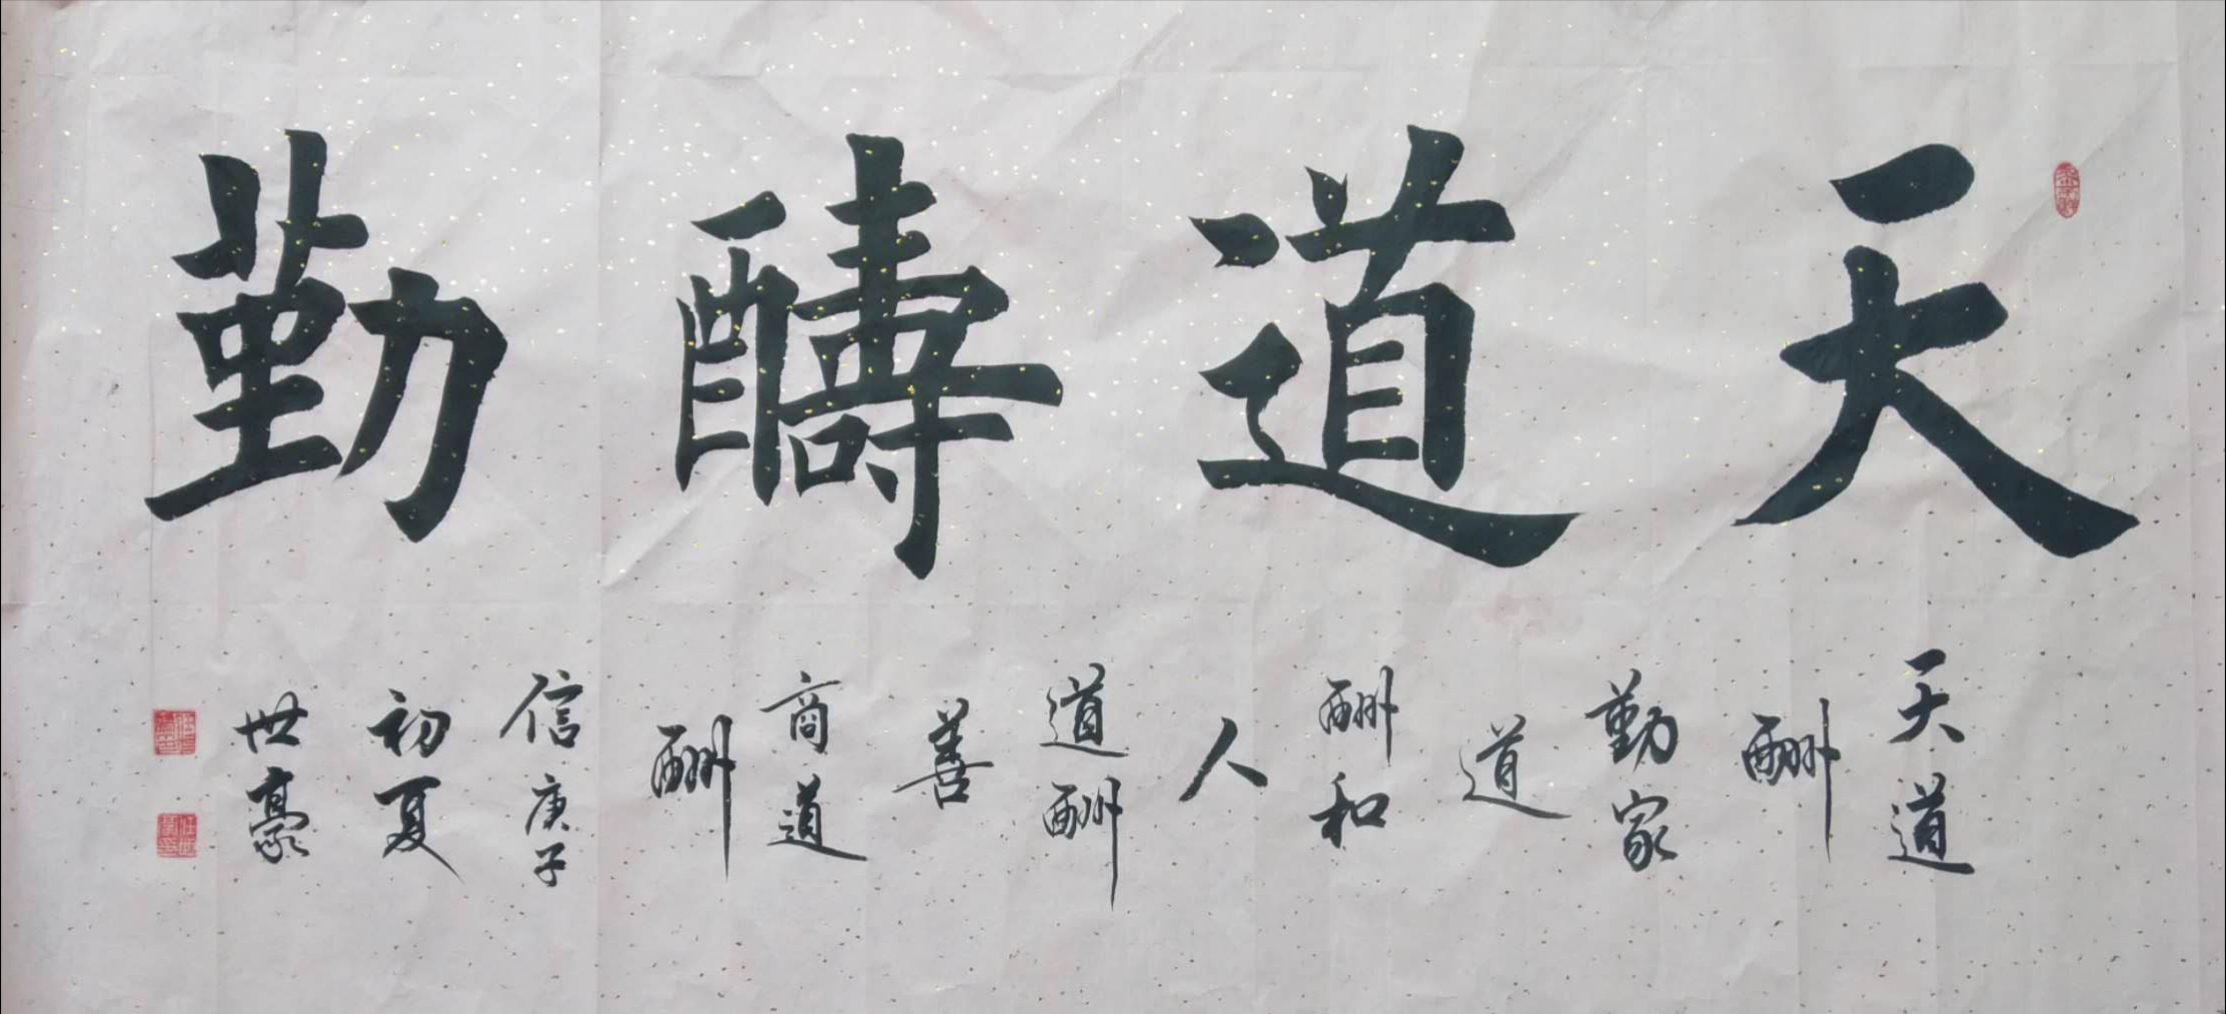 天道醻勤
天道
酬
勤家
道
酬和
人
道酬
善
商道
酬
信庚子
初夏
世豪